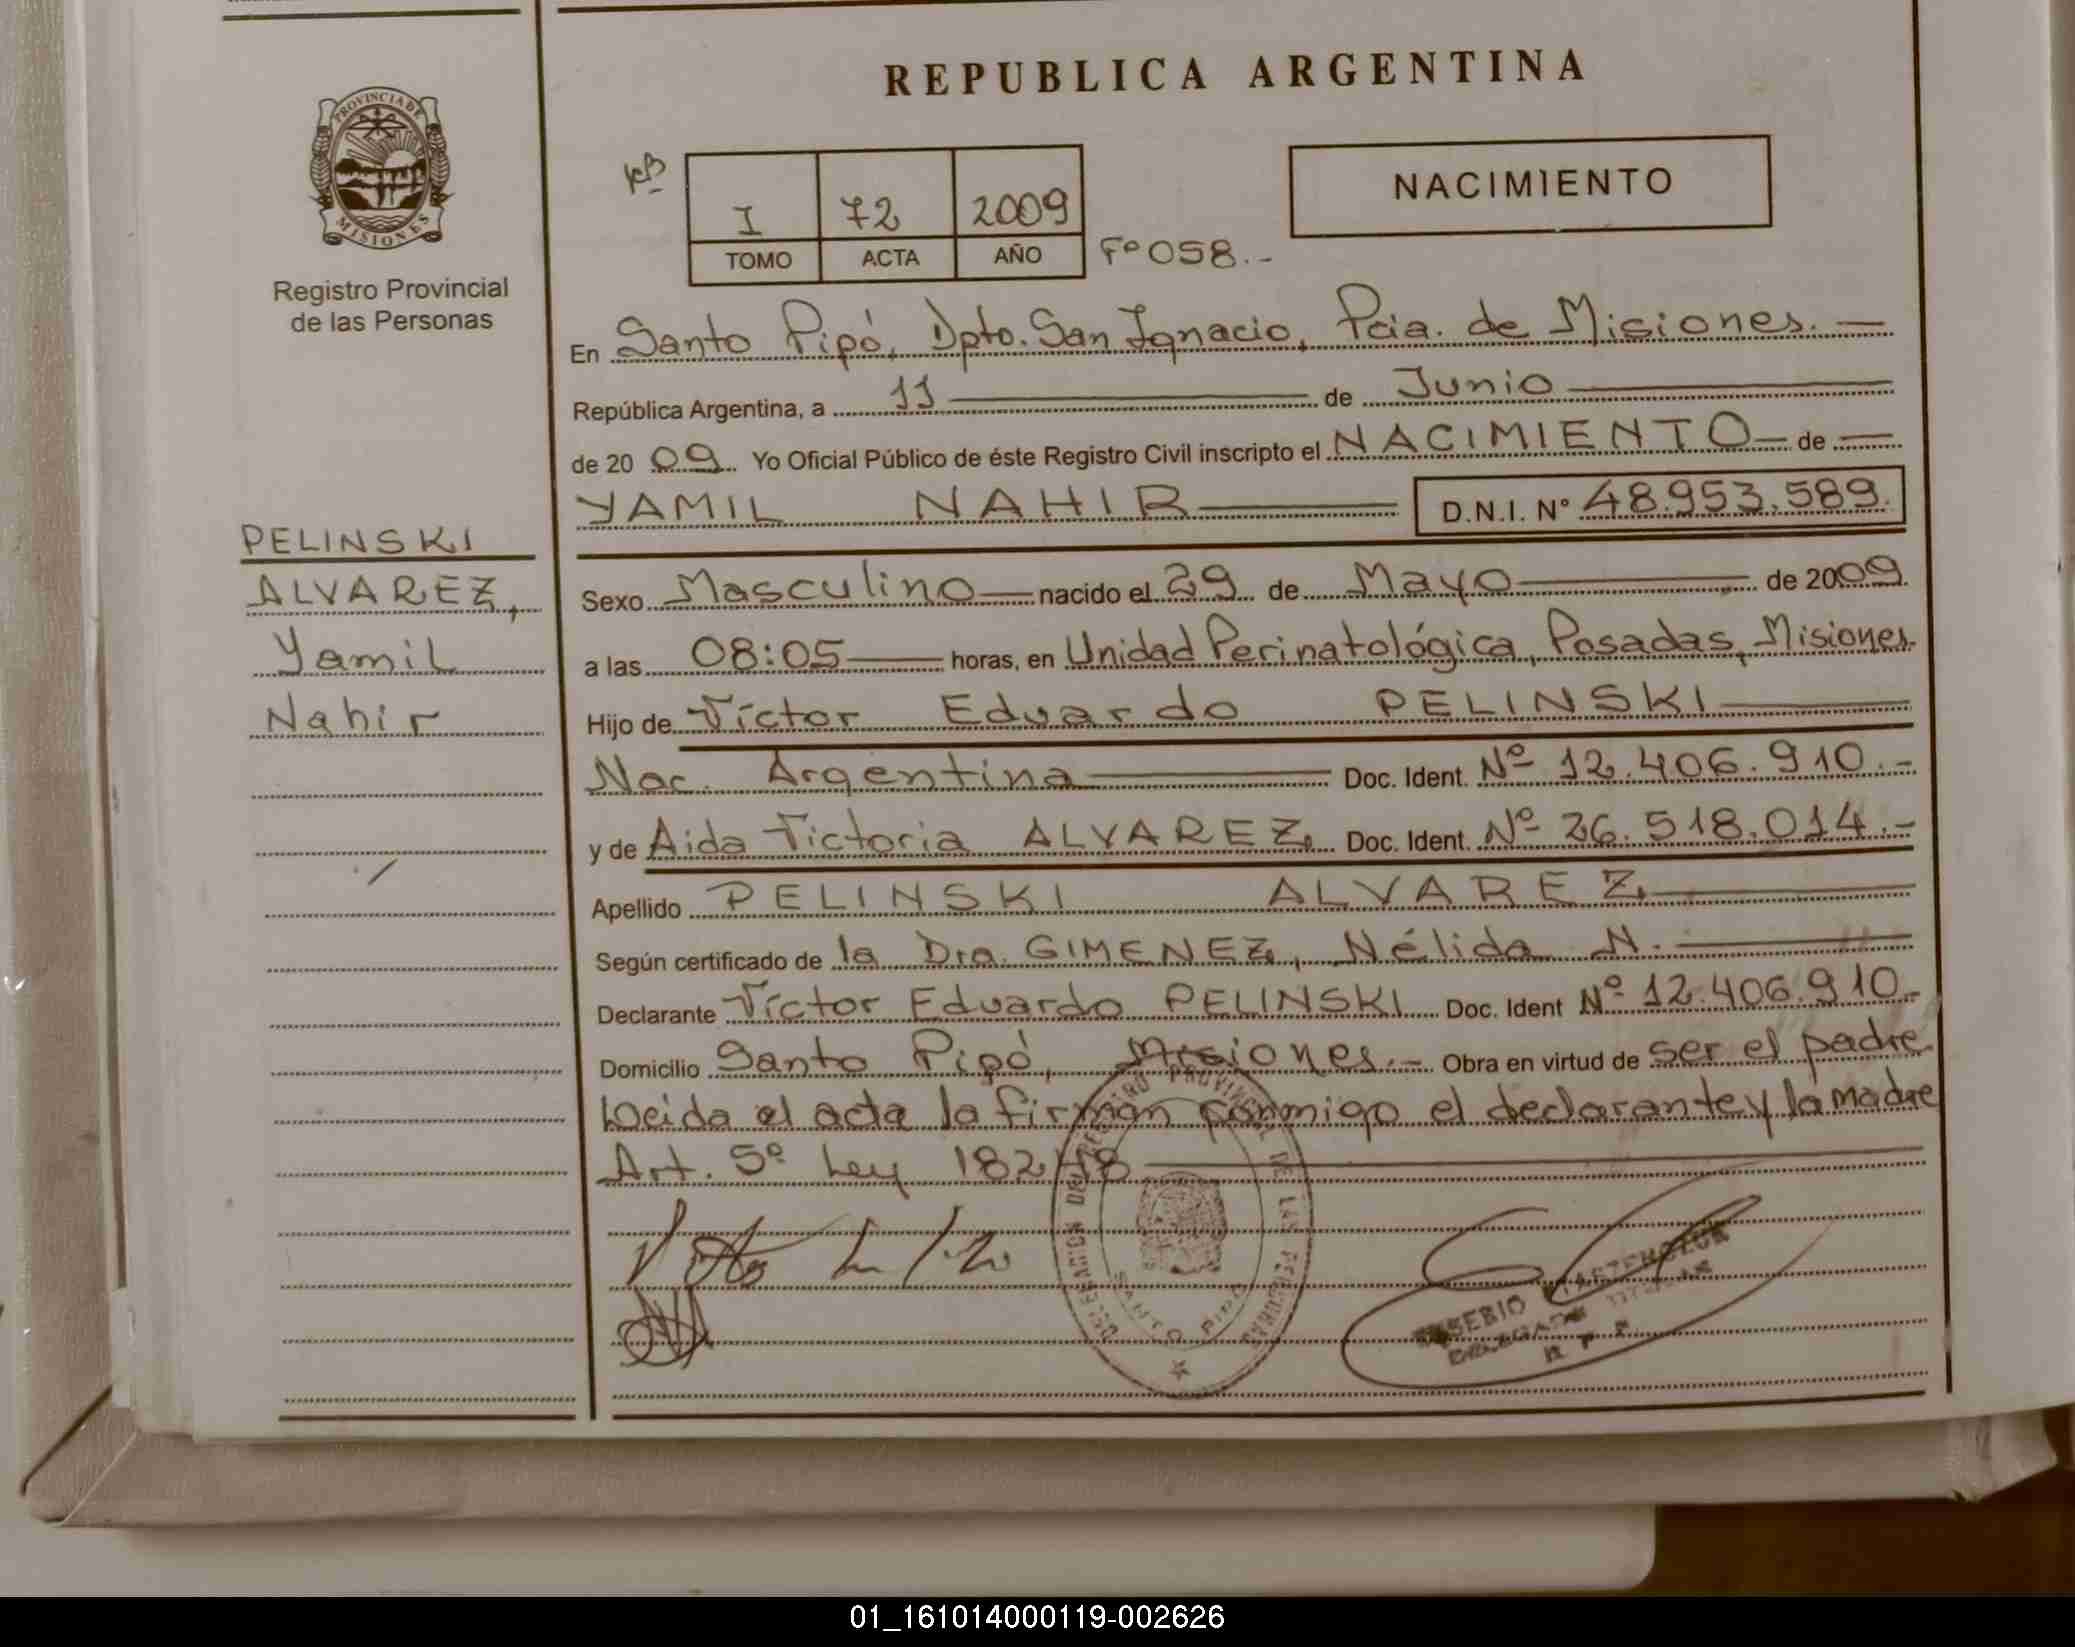 REPUBLICA ARGENTINA
PROVINCIA DE
MISIONES
Registro Provincial
de las Personas
I 72 2009
TOMO ACTA AÑO
Fº 058.-
NACIMIENTO
En Santo Pipó, Dpto. San Ignacio, Pcia. de Misiones.-
República Argentina, a 11 de Junio
de 2009 Yo Oficial Público de éste Registro Civil inscripto el NACIMIENTO de
YAMIL NAHIR D.N.I. Nº 48.953.589.
PELINSKI
ALVAREZ,
Yamil
Nahir
Sexo Masculino nacido el 29 de Mayo de 2009
a las 08:05 horas, en Unidad Perinatológica, Posadas, Misiones.
Hijo de Víctor Eduardo PELINSKI
Nac. Argentina Doc. Ident. Nº 12.406.910.-
y de Aida Victoria ALVAREZ Doc. Ident. Nº 26.518.014.-
Apellido PELINSKI ALVAREZ
Según certificado de la Dra. GIMENEZ, Nélida N.
Declarante Víctor Eduardo PELINSKI Doc. Ident Nº 12.406.910.-
Domicilio Santo Pipó, Misiones.- Obra en virtud de ser el padre
Leida el acta la firman conmigo el declarante y la madre
Art. 5º Ley 18248
DELEGACION DEL REGISTRO PROVINCIAL DE LAS PERSONAS
SANTO PIPO
EUSEBIO
DELEGADO TITULAR
R P P
01_161014000119-002626